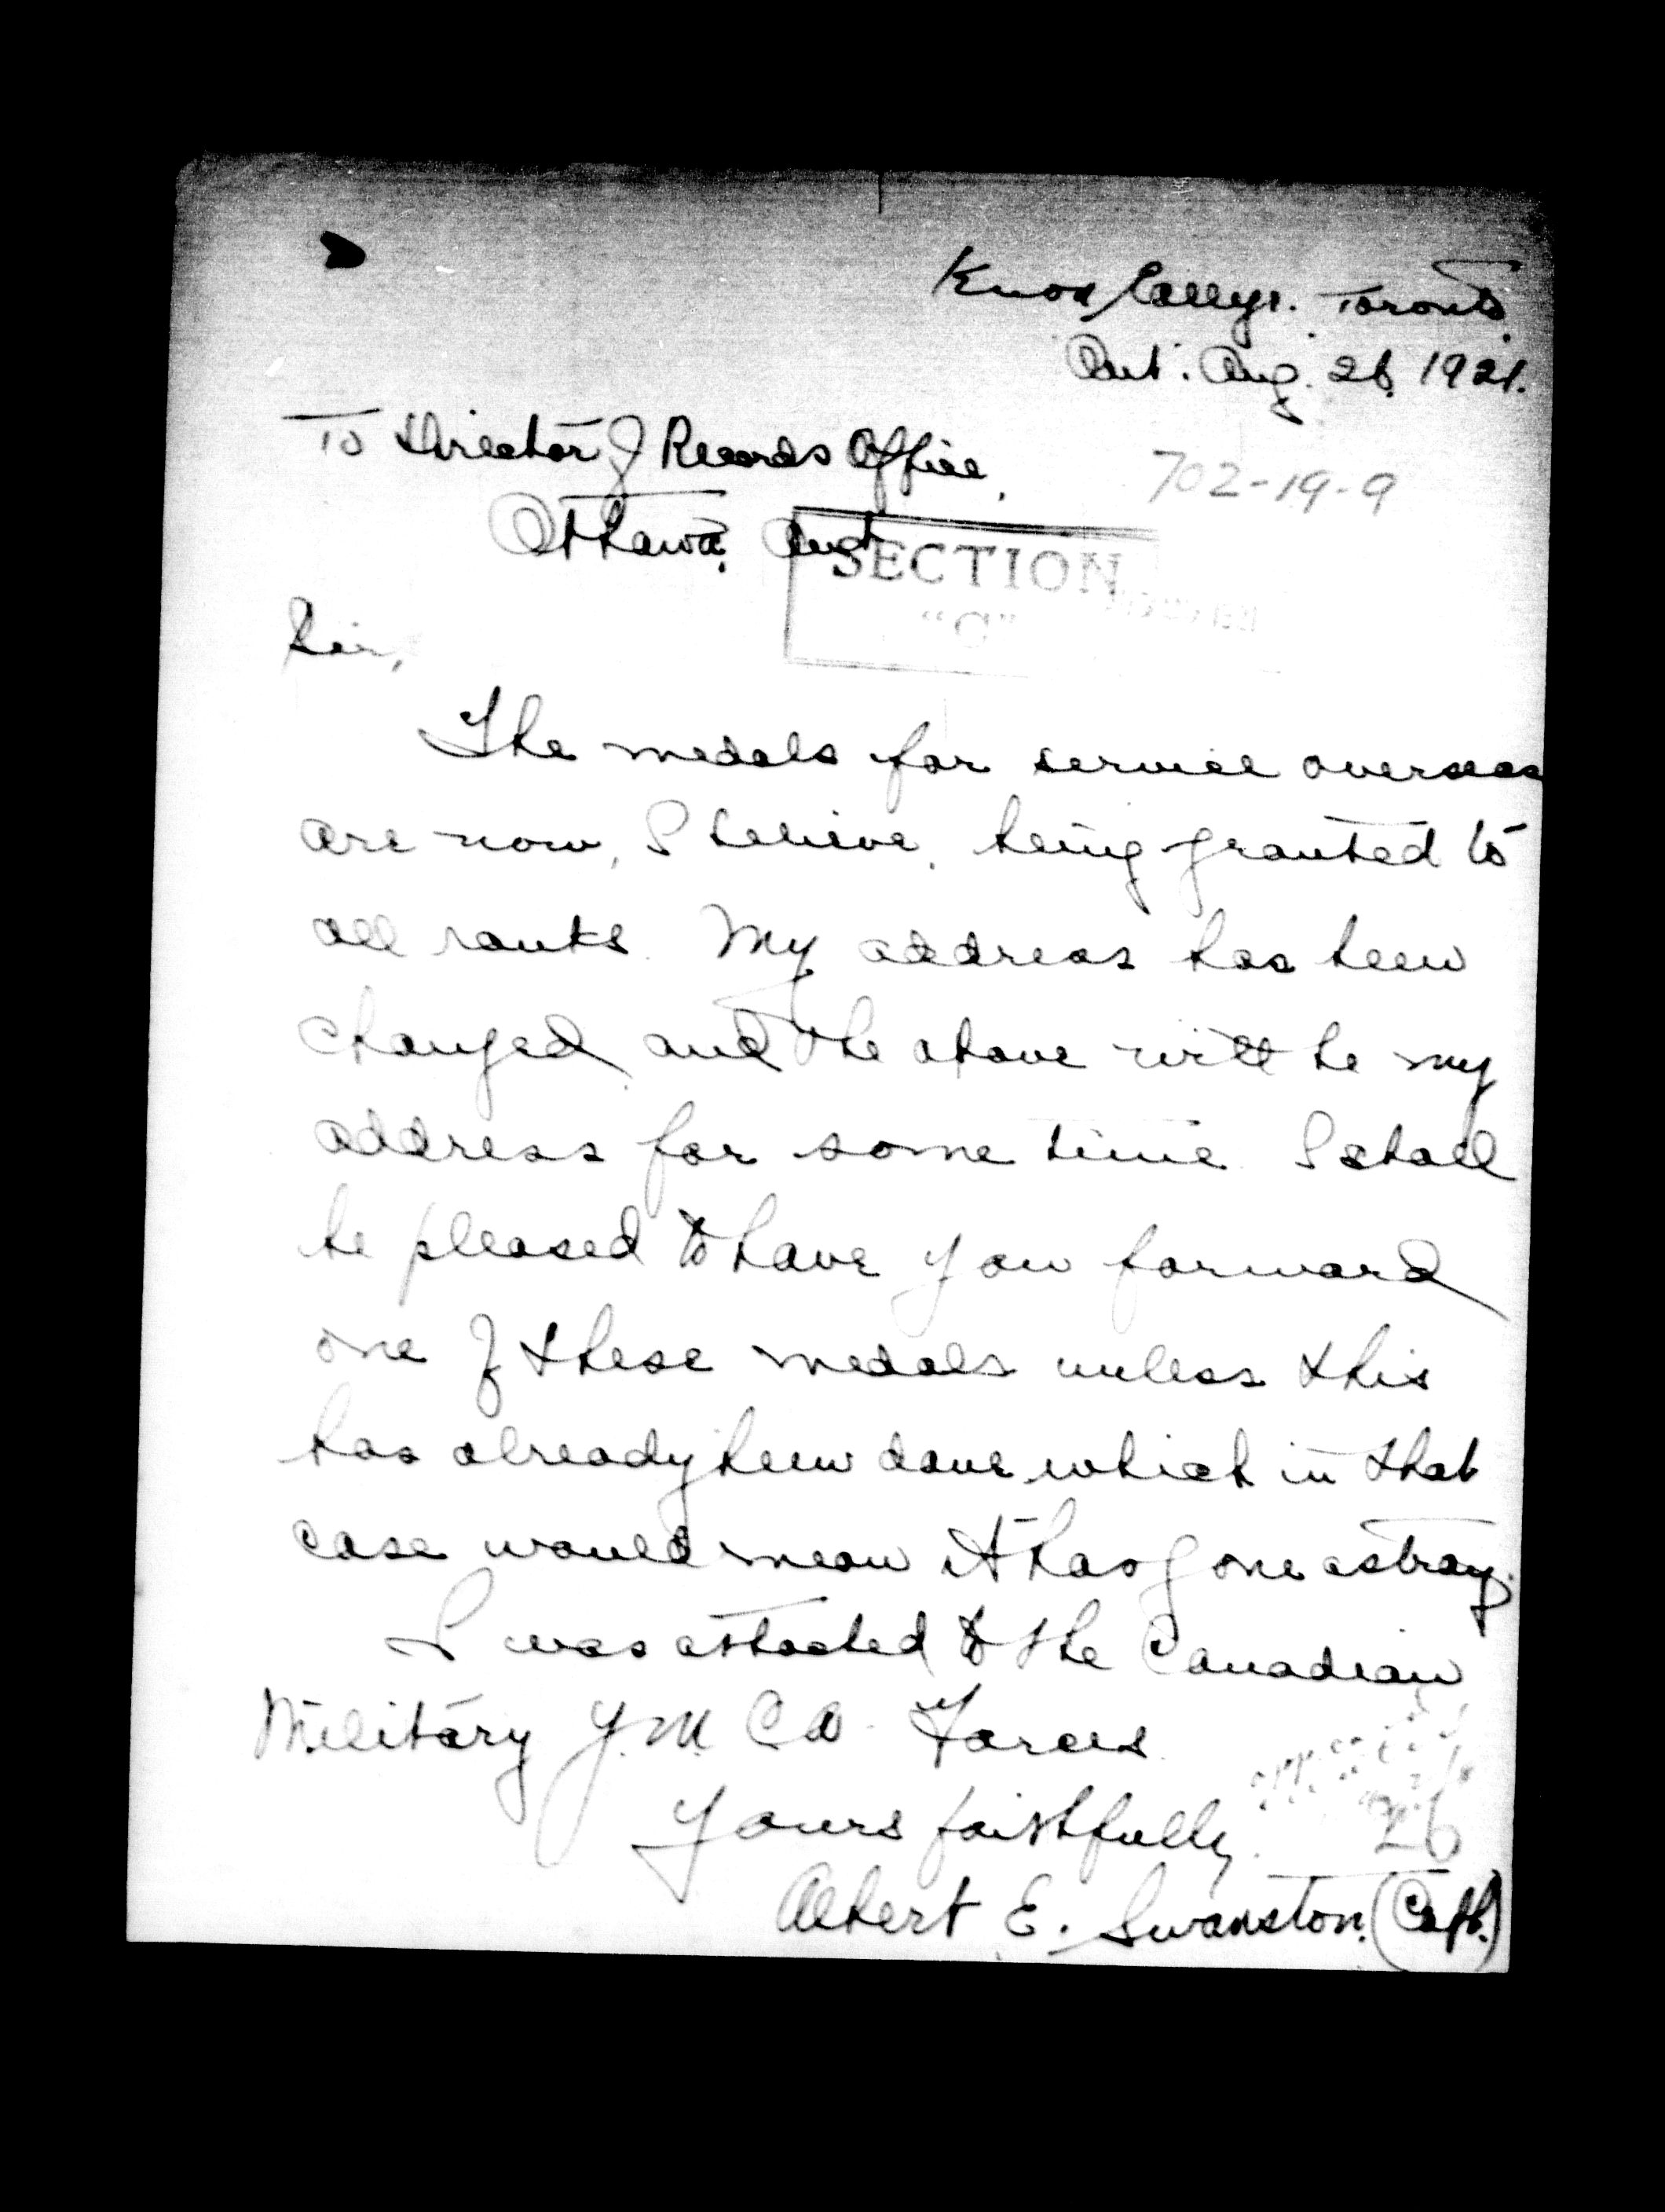 Knox College. Toronto.
Ont. Aug. 26. 1921.
To Director of Records Office,
702-19-9
Ottawa. Ont
SECTION
"C"
Sir,
The medals for service overseas
are now, I believe, being granted to
all ranks. My address has been
changed and the above will be my
address for some time. I shall
be pleased to have you forward
one of these medals unless this
has already been done which in that
case would mean it has gone astray.
I was attached to the Canadian
Military Y.M.C.A. Forces.
Yours faithfully.
26
Albert E. Swanston. (Capt.)